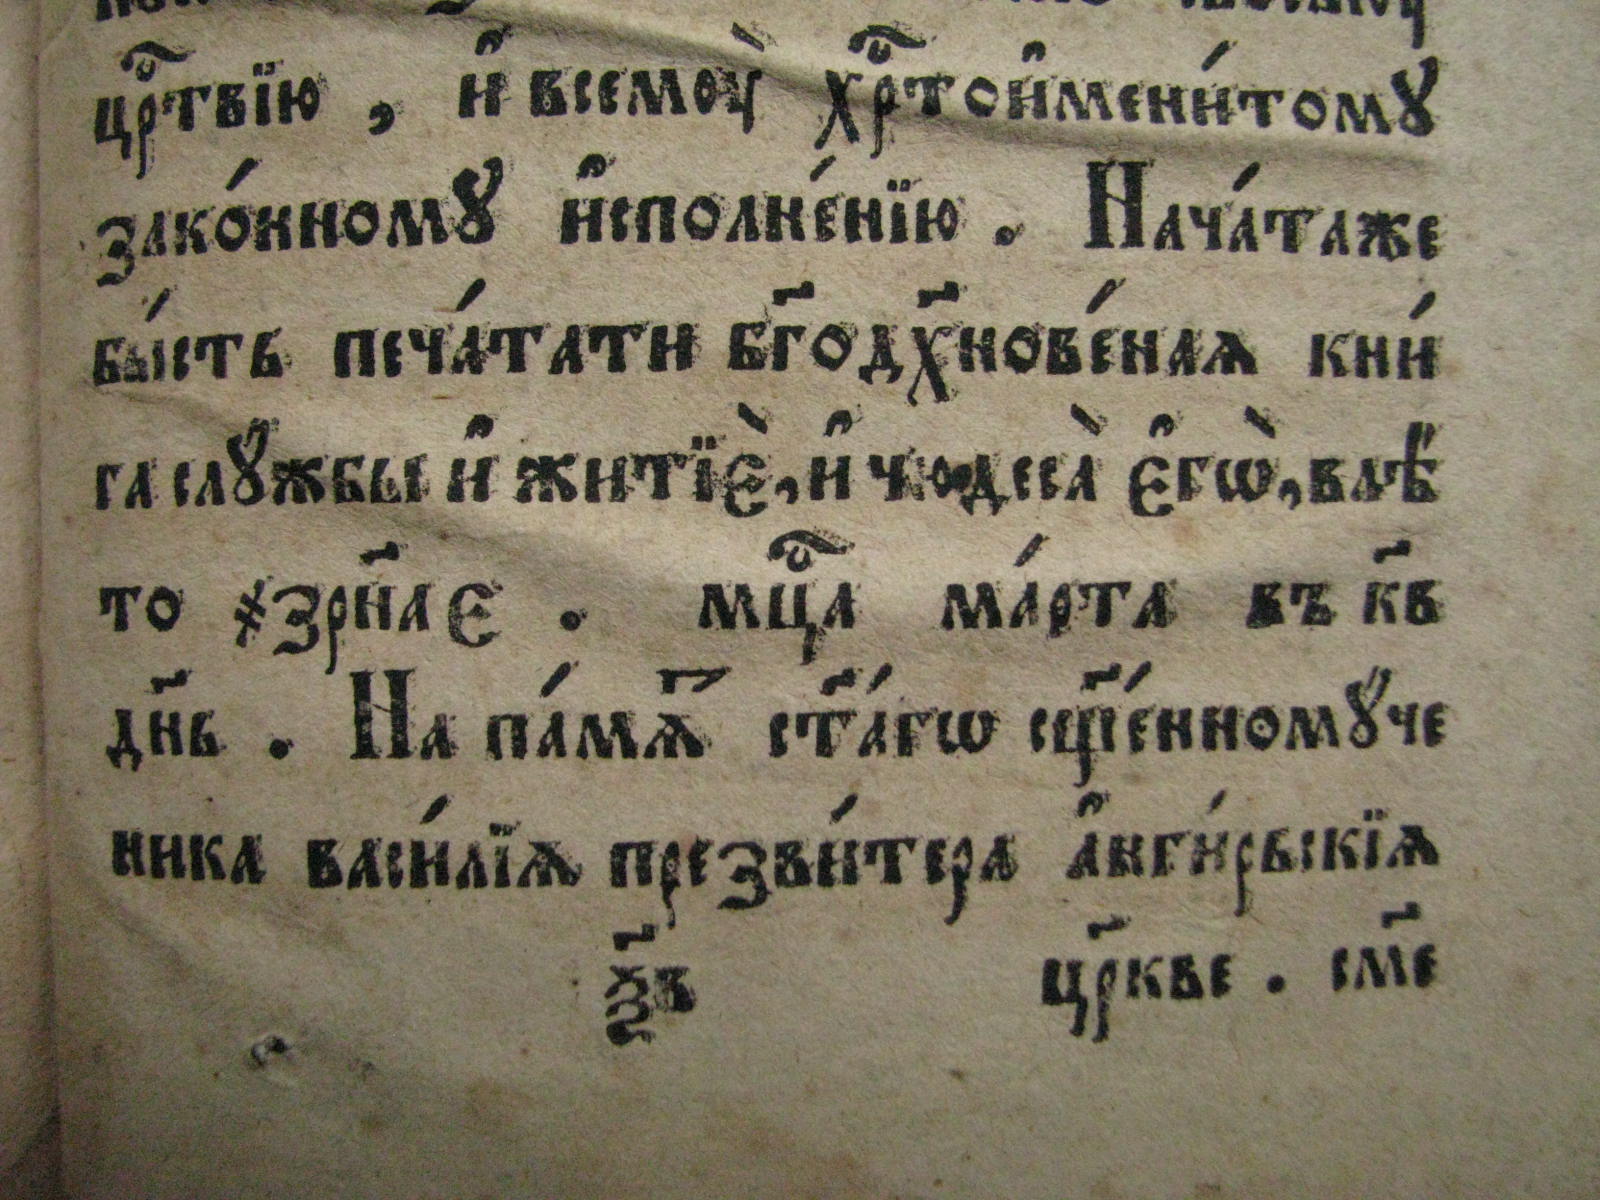 црⷭ҇твїю , и҆ всемоу̀ хрⷭ҇тои҆мени́томꙋ
зако́нномꙋ и҆сполне́нїю . Нача́таже
бы́сть печа́тати бг҃одх҃нове́ная кни́
га слꙋжбы и҆ житїѐ, и҆ чюдеса̀ є҆гѡ̀, влѣ̈
то ҂зрн҃аꙅ . мцⷭ҇а ма́рта въ кв҃
дн҃ь . На па́мѧ҃ ст҃а́гѡ сщ҃е́нномꙋче
ника васи́лїѧ презви́тера а҆нги́рьскїѧ
ѯ҃в
цр҃кве . см҃е